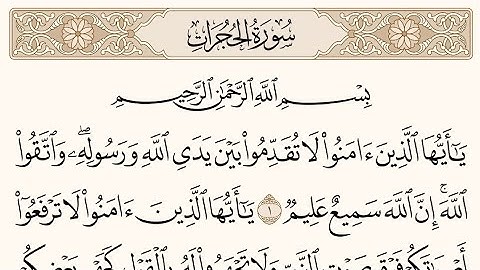 سُورَةُ الحُجُرَاتِ
بِسْمِ ٱللَّهِ ٱلرَّحْمَٰنِ ٱلرَّحِيمِ
يَٰٓأَيُّهَا ٱلَّذِينَ ءَامَنُوا۟ لَا تُقَدِّمُوا۟ بَيْنَ يَدَىِ ٱللَّهِ وَرَسُولِهِۦۖ وَٱتَّقُوا۟
ٱللَّهَۚ إِنَّ ٱللَّهَ سَمِيعٌ عَلِيمٌ ١ يَٰٓأَيُّهَا ٱلَّذِينَ ءَامَنُوا۟ لَا تَرْفَعُوٓا۟
أَصْوَٰتَكُمْ فَوْقَ صَوْتِ ٱلنَّبِىِّ وَلَا تَجْهَرُوا۟ لَهُۥ بِٱلْقَوْلِ كَجَهْرِ بَعْضِكُمْ